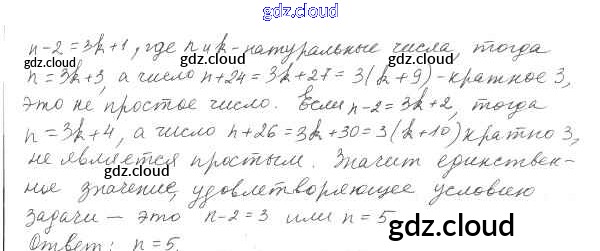 gdz.cloud
n-2=3k+1, где n и k - натуральные числа, тогда
n=3k+3, а число n+24=3k+27=3(k+9) - кратное 3,
gdz.cloud gdz.cloud
это не простое число. Если n-2=3k+2, тогда
n=3k+4, а число n+26=3k+30=3(k+10) кратно 3,
не является простым. Значит единствен-
gdz.cloud gdz.cloud
ное значение, удовлетворяющее условию
задачи - это n-2=3 или n=5
gdz.cloud
Ответ: n=5.